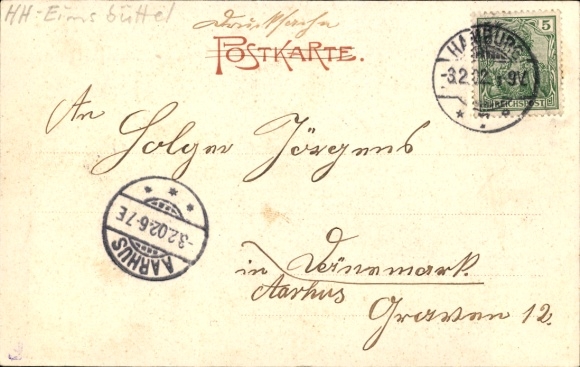 HH-Eimsbüttel
Drucksache
POSTKARTE.
5
REICHSPOST
HAMBURG
-3.2.02. 8-9V.
An
Holger Jörgens
AARHUS
-3.2.02.6-7E
in Dänemark.
Aarhus
Graven 12.